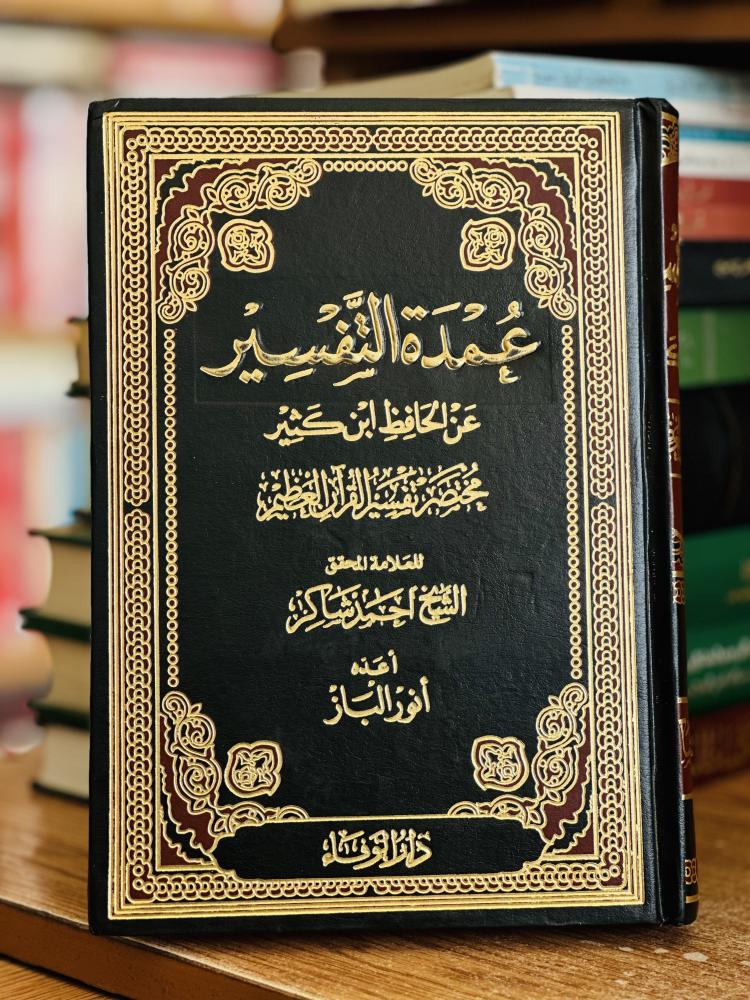 عُمْدَةُ التَّفْسِيْرِ
عَنْ الْحَافِظِ ابْنِ كَثِيْر
مُخْتَصَرُ تَفْسِيْرِ الْقُرْآنِ الْعَظِيْمِ
للعلامة المحقق
الشَّيْخ أَحْمَد شَاكِرْ
أعَدّه
أنْوَر البَازْ
دَارُ الْوَفَاءِ